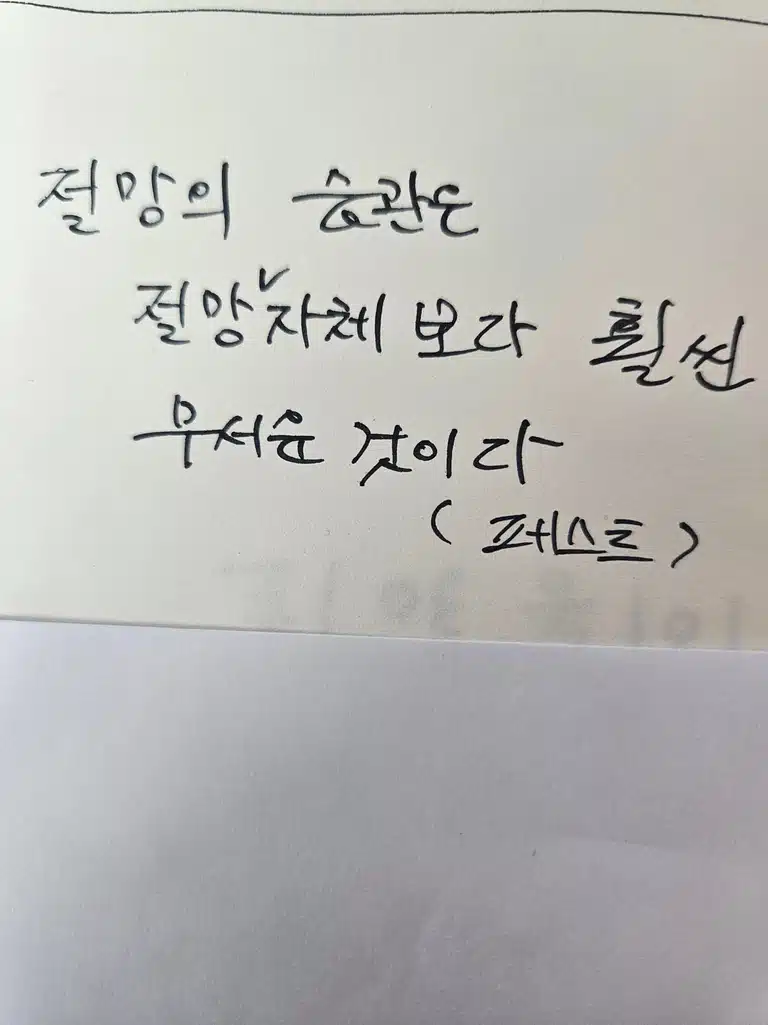 절망의 습관은
절망✓자체 보다 훨씬
무서운 것이다
(페스트)